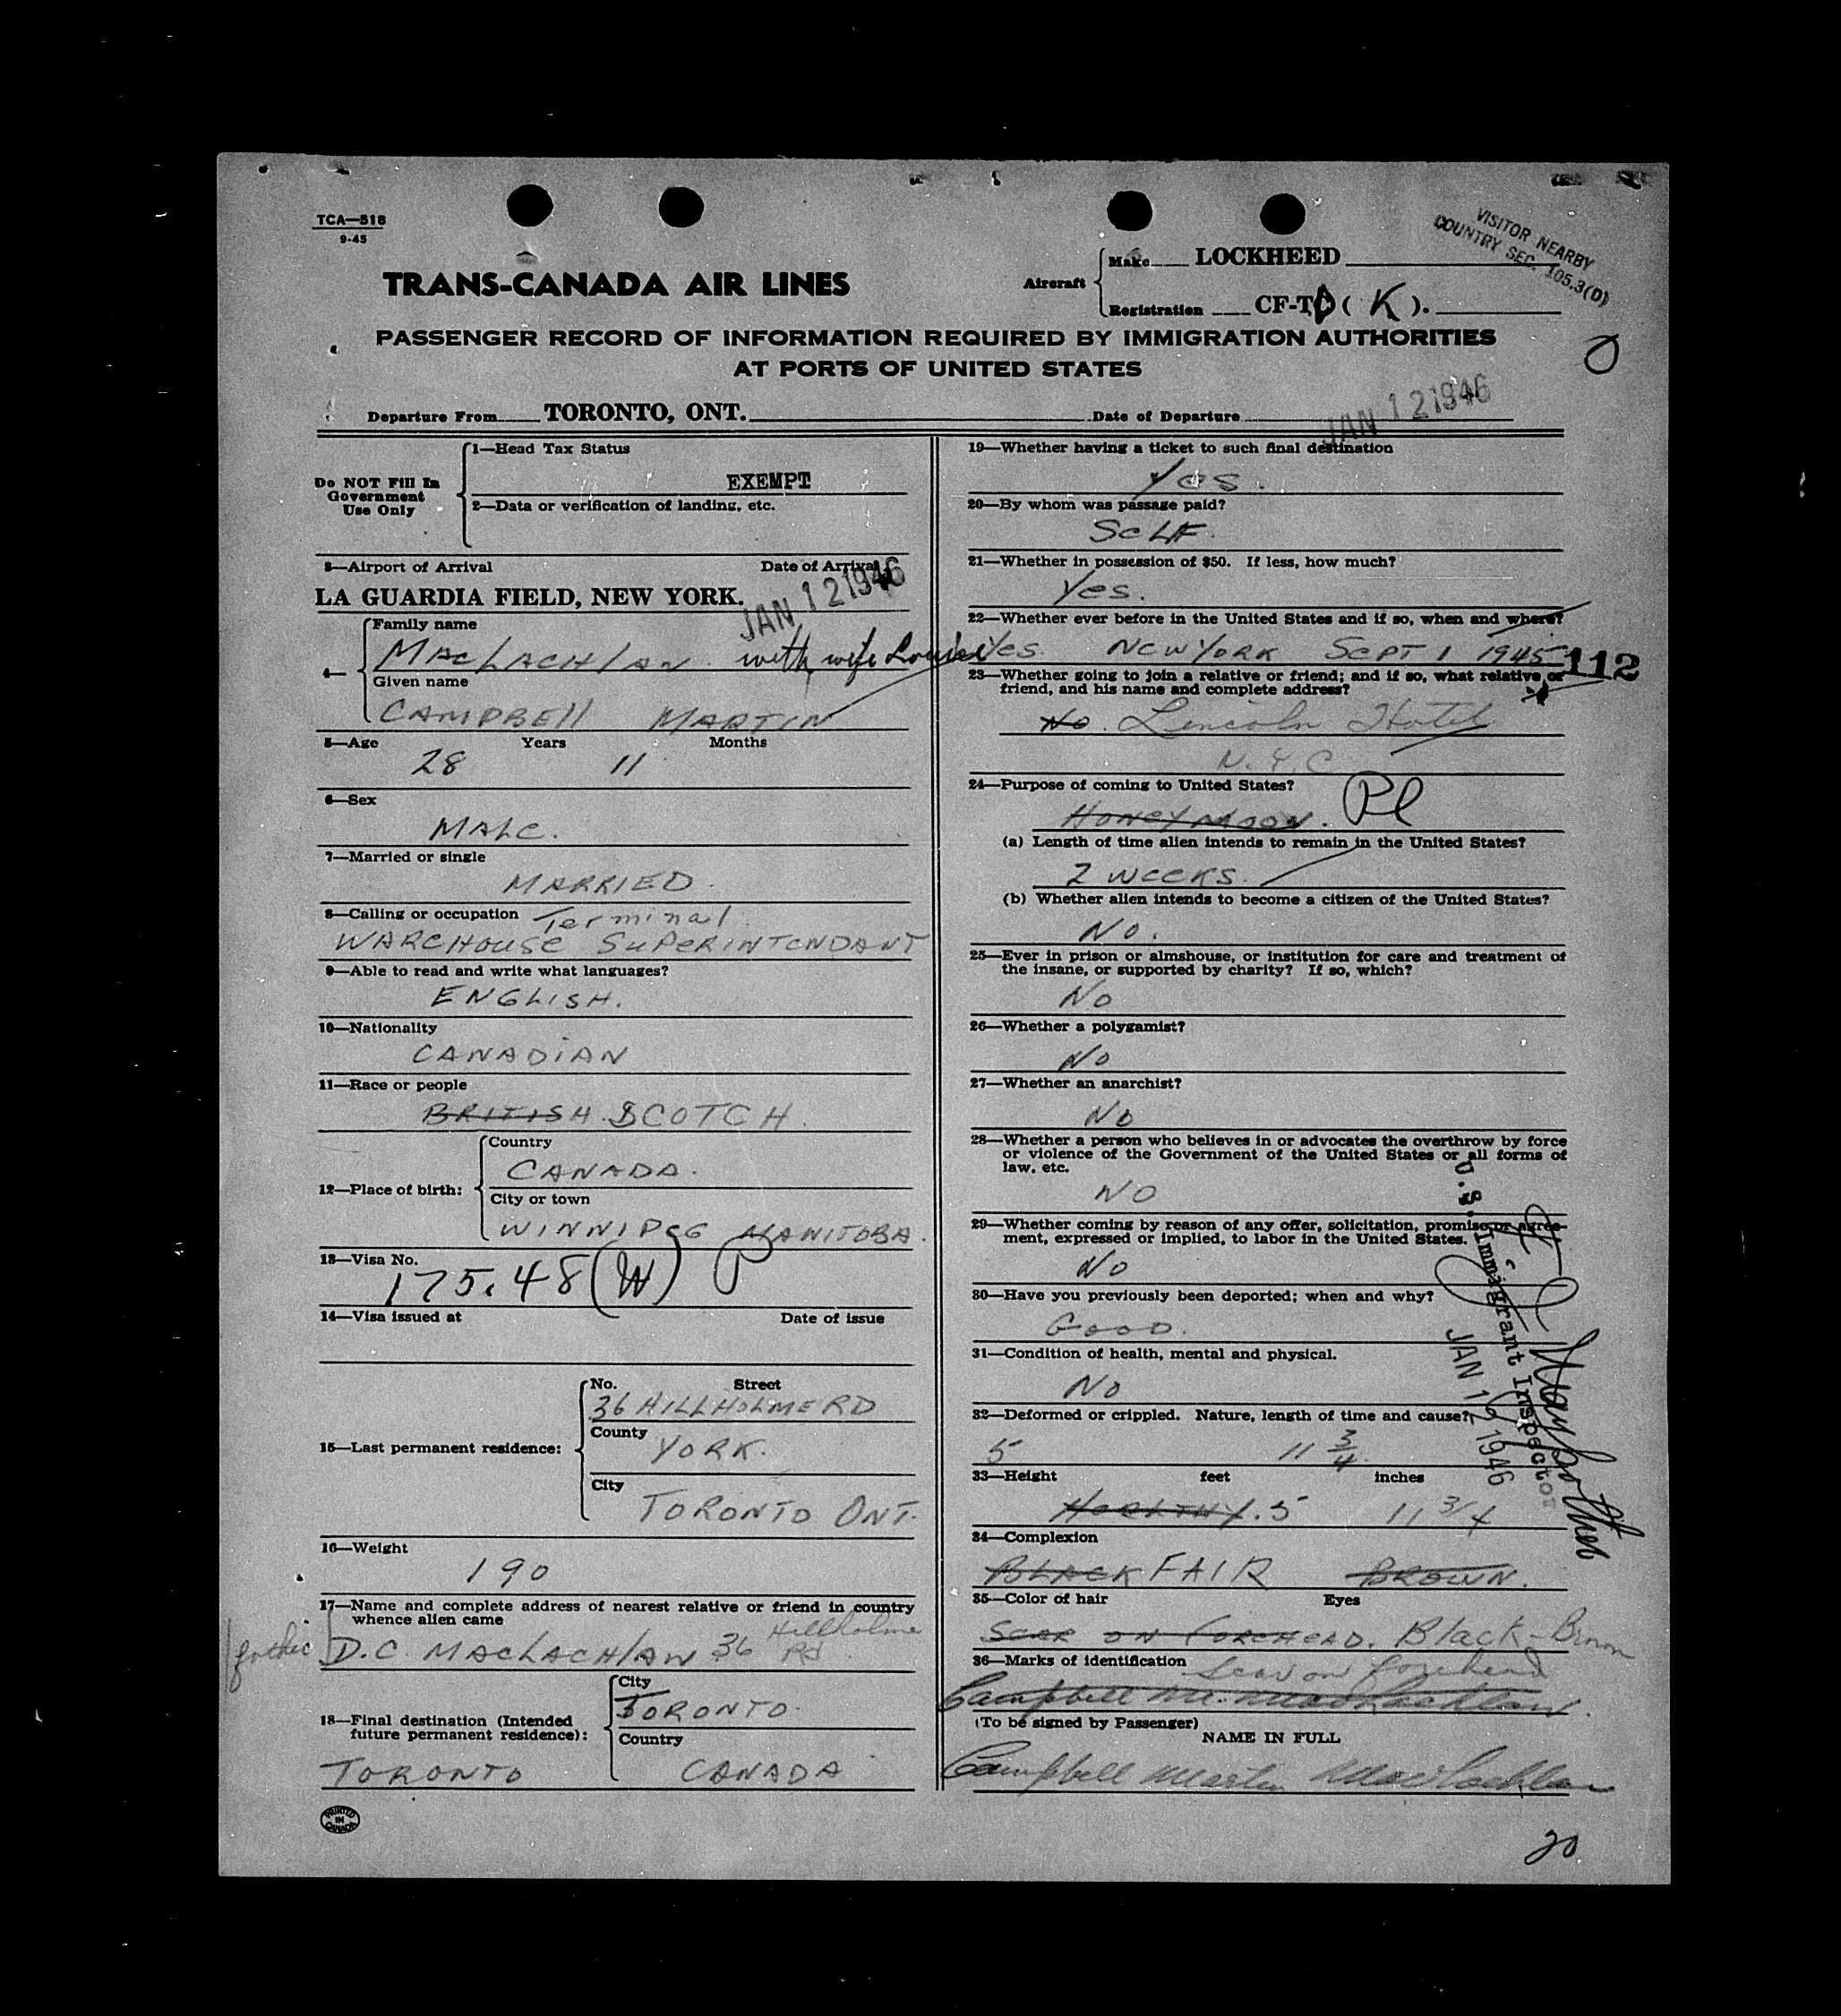 TCA—518
9-45
VISITOR NEARBY
COUNTRY SEC. 105.3(D)
TRANS-CANADA AIR LINES
Aircraft
Make LOCKHEED
Registration CF-T ( K ).
PASSENGER RECORD OF INFORMATION REQUIRED BY IMMIGRATION AUTHORITIES
AT PORTS OF UNITED STATES
Departure From TORONTO, ONT. Date of Departure JAN 12 1946
Do NOT Fill In
Government
Use Only
1—Head Tax Status
EXEMPT
2—Data or verification of landing, etc.
3—Airport of Arrival Date of Arrival
LA GUARDIA FIELD, NEW YORK. JAN 12 1946
4—
Family name
MACLACHLAN with wife Louise
Given name
CAMPBELL MARTIN
5—Age Years Months
28 11
6—Sex
MALE.
7—Married or single
MARRIED.
8—Calling or occupation Terminal
WAREHOUSE SUPERINTENDANT
9—Able to read and write what languages?
ENGLISH.
10—Nationality
CANADIAN
11—Race or people
BRITISH. SCOTCH.
12—Place of birth:
Country
CANADA.
City or town
WINNIPEG MANITOBA.
13—Visa No.
175.48 (W) P
14—Visa issued at Date of issue
15—Last permanent residence:
No. Street
36 HILLHOLME RD
County
YORK.
City
TORONTO ONT.
16—Weight
190
17—Name and complete address of nearest relative or friend in country
whence alien came
father D.C. MACLACHLAN 36 Hillholme Rd
18—Final destination (Intended
future permanent residence):
City
TORONTO.
Country
TORONTO CANADA
PRINTED
IN
CANADA
19—Whether having a ticket to such final destination
Yes.
20—By whom was passage paid?
SELF.
21—Whether in possession of $50. If less, how much?
Yes.
22—Whether ever before in the United States and if so, when and where?
Yes. NEW YORK SEPT 1 1945
112
23—Whether going to join a relative or friend; and if so, what relative or
friend, and his name and complete address?
No. Lincoln Hotel
N.Y.C
24—Purpose of coming to United States?
HONEYMOON. Pl
(a) Length of time alien intends to remain in the United States?
2 WEEKS.
(b) Whether alien intends to become a citizen of the United States?
No.
25—Ever in prison or almshouse, or institution for care and treatment of
the insane, or supported by charity? If so, which?
No
26—Whether a polygamist?
No
27—Whether an anarchist?
No
28—Whether a person who believes in or advocates the overthrow by force
or violence of the Government of the United States or all forms of
law, etc.
NO
29—Whether coming by reason of any offer, solicitation, promise or agree-
ment, expressed or implied, to labor in the United States.
No
30—Have you previously been deported; when and why?
GOOD.
31—Condition of health, mental and physical.
No
32—Deformed or crippled. Nature, length of time and cause?
5 11 3/4
33—Height feet inches
HEALTHY. 5 11 3/4
34—Complexion
BLACK FAIR BROWN.
35—Color of hair Eyes
SCAR ON FOREHEAD. Black - Brown
36—Marks of identification Scar on forehead
Campbell M. MacLachlan.
(To be signed by Passenger)
NAME IN FULL
Campbell Martin MacLachlan
U.S. Immigrant Inspector
JAN 12 1946
20